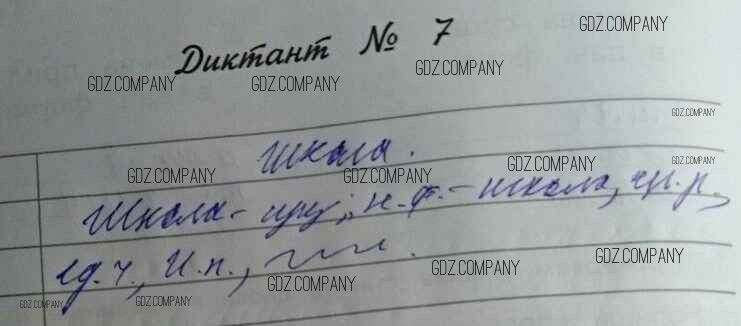 Диктант № 7
GDZ.COMPANY
GDZ.COMPANY
GDZ.COMPANY
GDZ.COMPANY
GDZ.COMPANY
Школа.
GDZ.COMPANY
GDZ.COMPANY
GDZ.COMPANY
GDZ.COMPANY
Школа - сущ., н.ф. - школа, ж.р.,
GDZ.COMPANY
GDZ.COMPANY
ед.ч., И.п.,
GDZ.COMPANY
GDZ.COMPANY
GDZ.COMPANY
GDZ.COMPANY
GDZ.COMPANY
GDZ.COMPANY